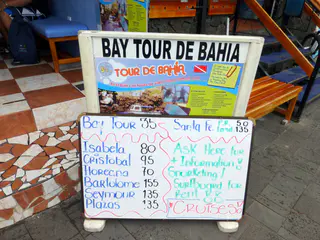 BAY TOUR DE BAHIA
TOUR DE BAHIA
Bay Tour 35
Isabela 80
Cristobal 95
Floreana 70
Bartolome 155
Seymour 135
Plazas 135
Santa Fe 50
135
Ask Here for
+ Information
Snorkeling!
Surfboard for
Rent
CRUISES